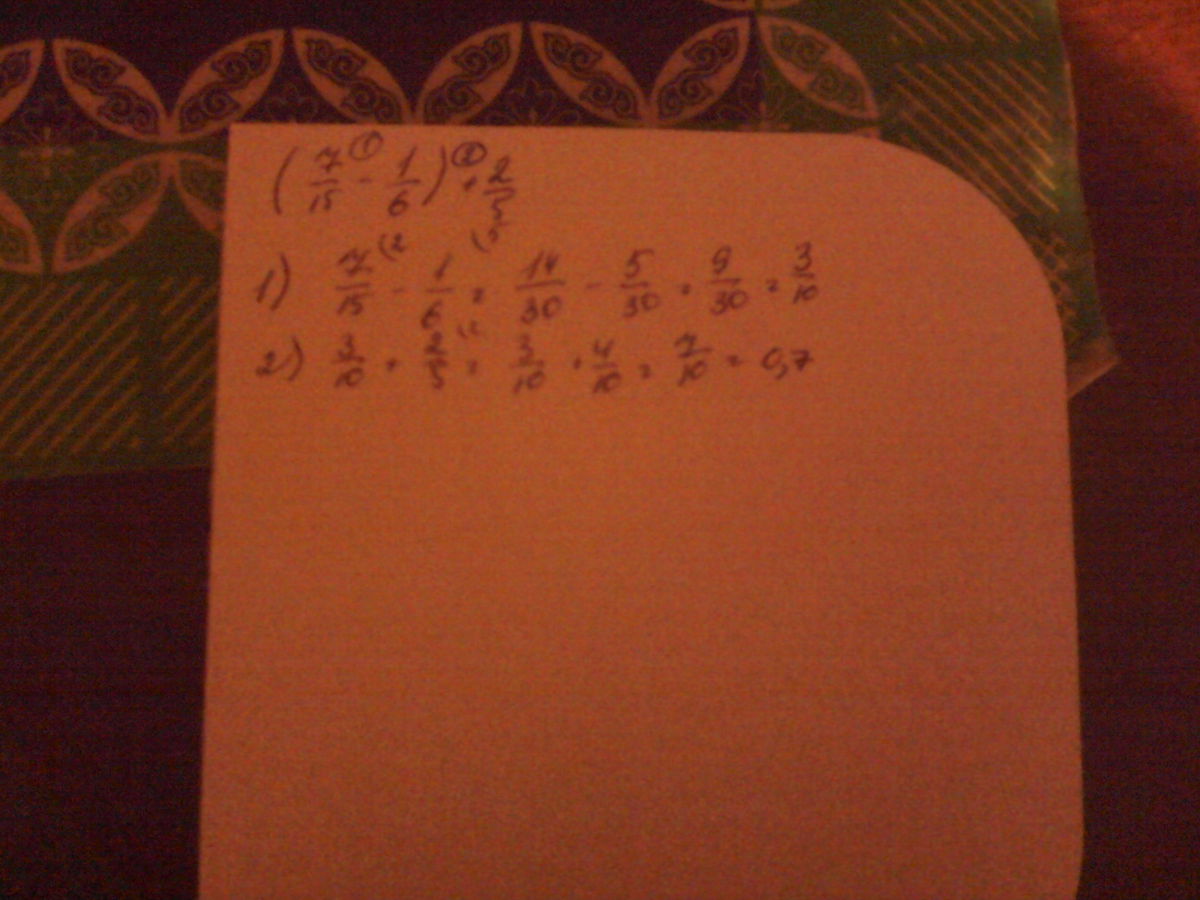 (7/15 ① - 1/6) ② + 2/5
1) 7/15 (2 - 1/6 (5 = 14/30 - 5/30 = 9/30 = 3/10
2) 3/10 + 2/5 (2 = 3/10 + 4/10 = 7/10 = 0,7